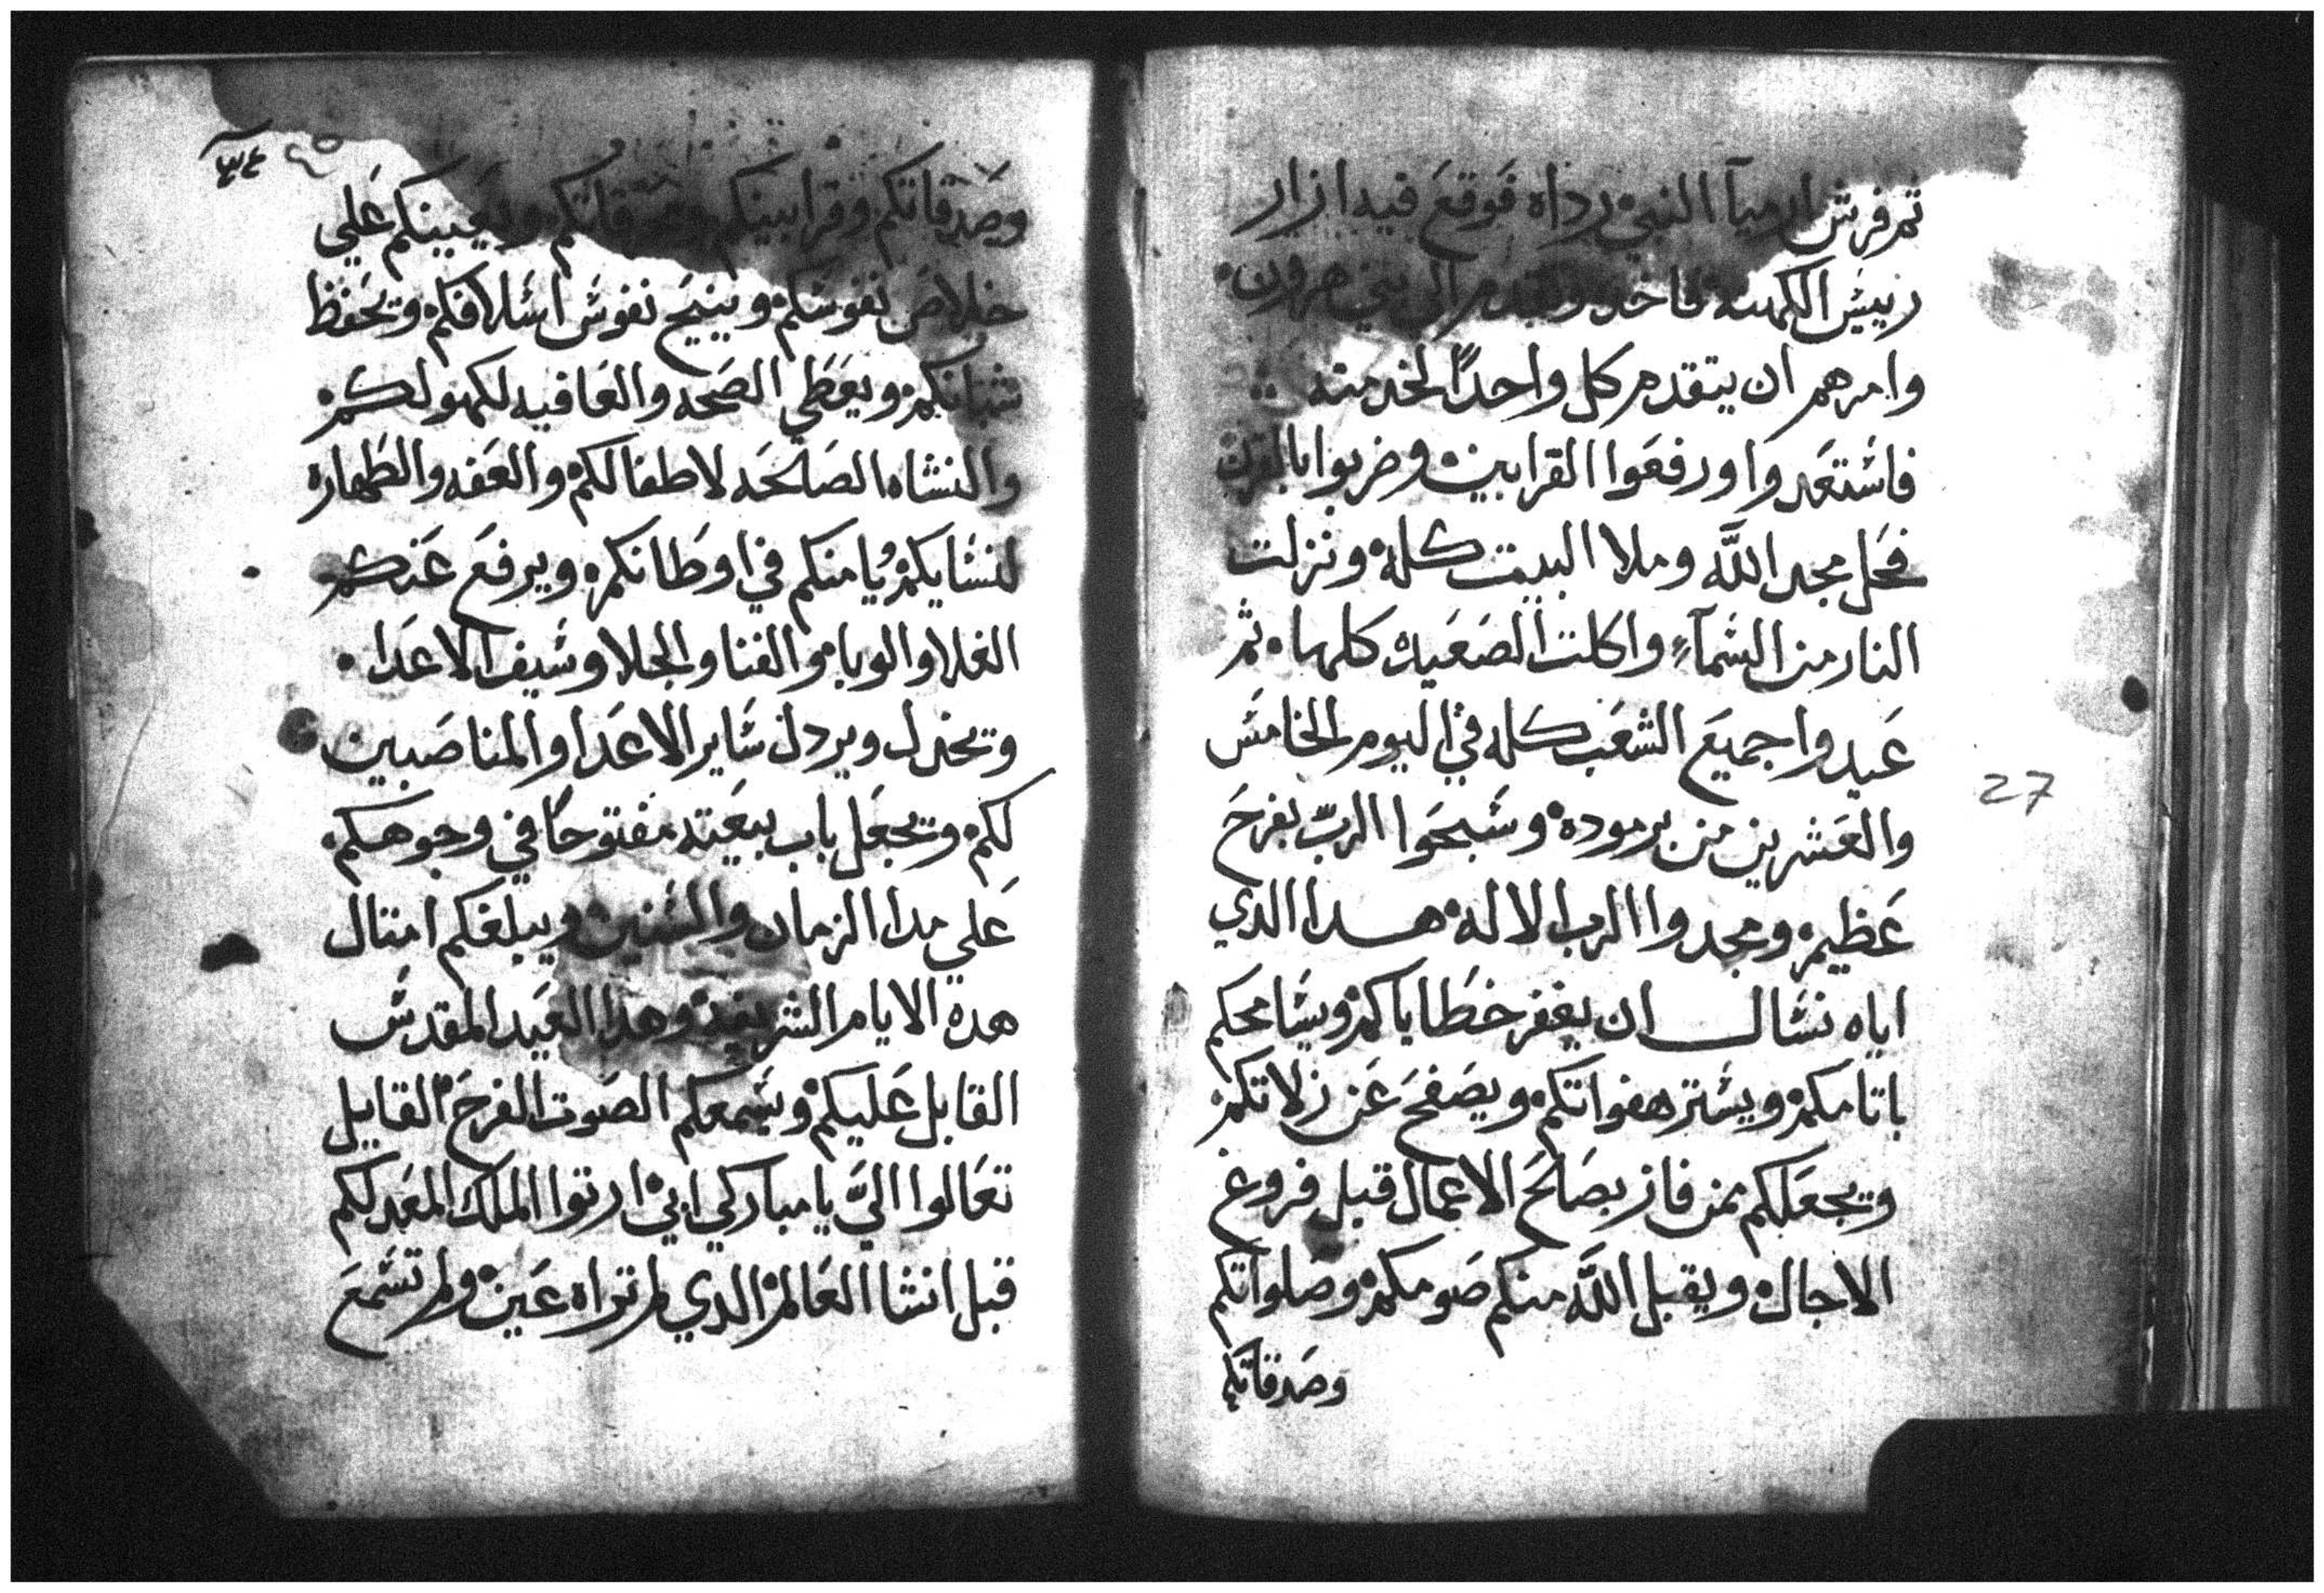 ثم فرش ارميآ النبي رداه فوقع فيه ازار
رييس الكهنه فاخده وتقدم الي بني هرون
وامرهم ان يتقدم كل واحدًا لخدمته
فاستعدوا ورفعوا القرابين وضربوا بالقرن
فحل مجد اللّه وملا البيت كله ونزلت
النار من السمآء واكلت الصعيده كلها ثم
عيدوا جميع الشعب كله في اليوم الخامس
والعشرين من برموده وسبحوا الربّ بفرح
عظيم ومجدوا الرب الاله هدا الدي
اياه نسال ان يغفر خطاياكم ويسامحكم
باتامكم ويستر هفواتكم ويصفح عن زلاتكم
ويجعلكم ممن فاز بصالح الاعمال قبل فروغ
الاجال ويقبل اللّه منكم صومكم وصلواتكم
وصدقاتكم
27
٣٤
وصدقاتكم وقرابينكم ويعينكم علي
خلاص نفوسكم وينيح نفوس اسلافكم ويحفظ
شبانكم ويعطي الصحه والعافيه لكهولكم
والنشاه الصالحه لاطفالكم والعفه والطهاره
لنسايكم يُامنكم في اوطانكم ويرفع عنكم
الغلا والوبا والفنا والجلا وسيف الاعدا
ويخدل ويردل ساير الاعدا والمناصبين
لكم ويجعل باب بيعته مفتوحًا في وجوهكم
علي مدا الزمان والسنين ويبلغكم امتال
هده الايام الشريفه وهدا العيد المقدس
القابل عليكم ويسمعكم الصوت الفرح القايل
تعالوا اليَّ يا مباركي ابي ارتوا الملك المعد لكم
قبل انشا العالم الدي لم تراه عين ولم تسمع